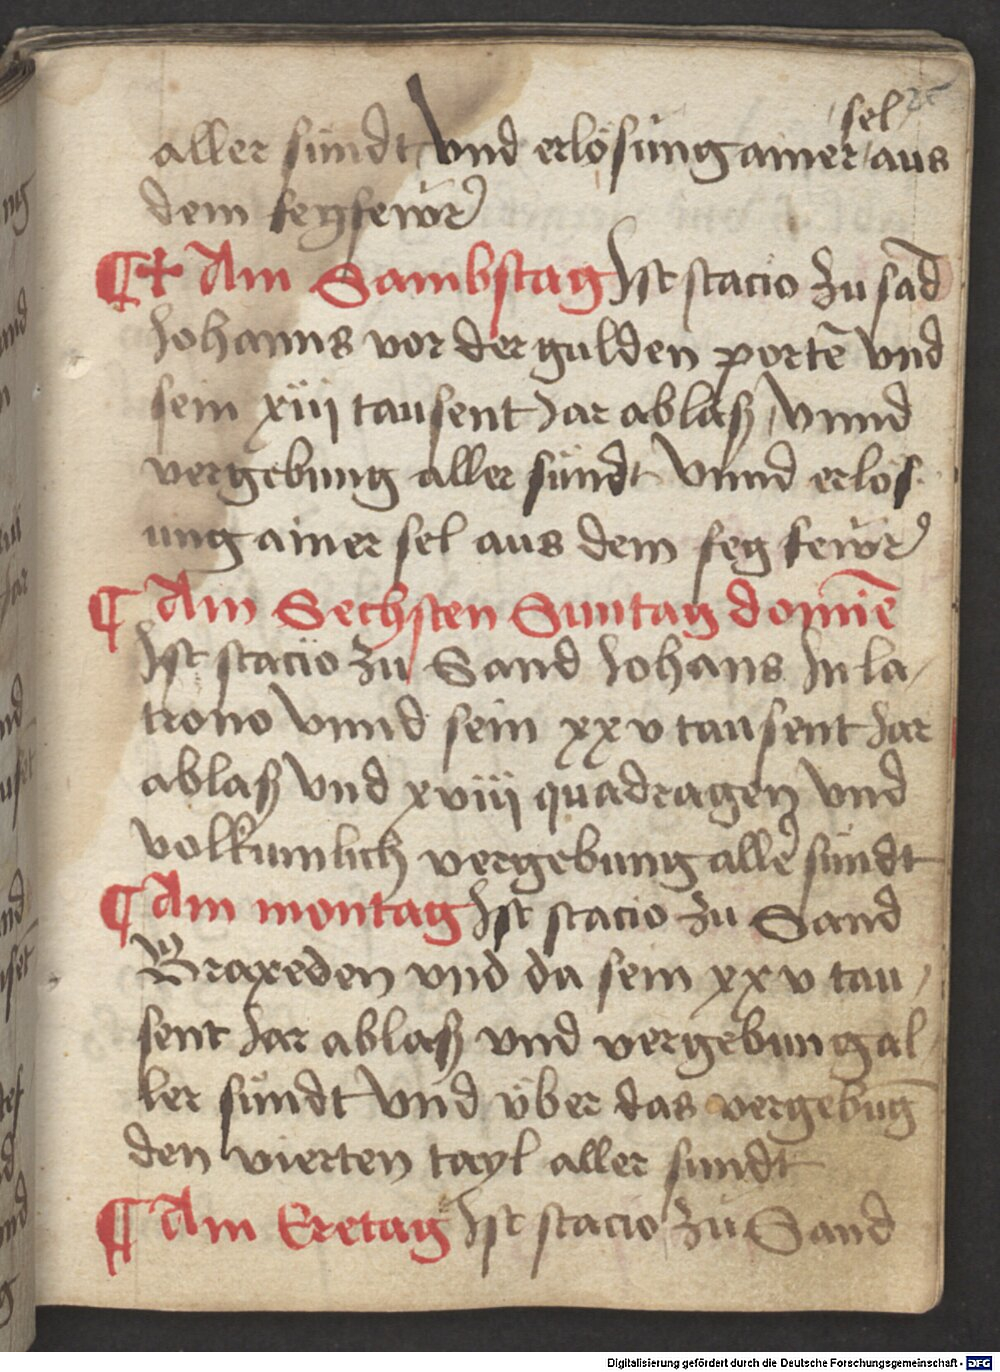 sel 25
aller sündt vnd erlösung ainer aus
dem fegfewr
¶ + Am Sambstag Ist stacio zu sād
Johanns vor der gulden portē vnd
sein xiij tausent Jar ablaß vnnd
vergebung aller sündt vnnd erlös
ung ainer sel aus dem feg fewr
¶ Am Sechsten Suntag domīē
Ist stacio zu Sand Johans In la
trono vnnd sein xxv tausent Jar
ablaß vnd xviij quadragen vnd
volkumlich vergebung aller sündt
¶ Am montag Ist stacio zu Sand
Braxeden vnd da sein xxv tau
sent Jar ablaß vnd vergebung al
ler sündt vnd vber das vergebūg
den vierten tayl aller sundt
¶ Am Eretag Ist stacio zu Sand
Digitalisierung gefördert durch die Deutsche Forschungsgemeinschaft - DFG